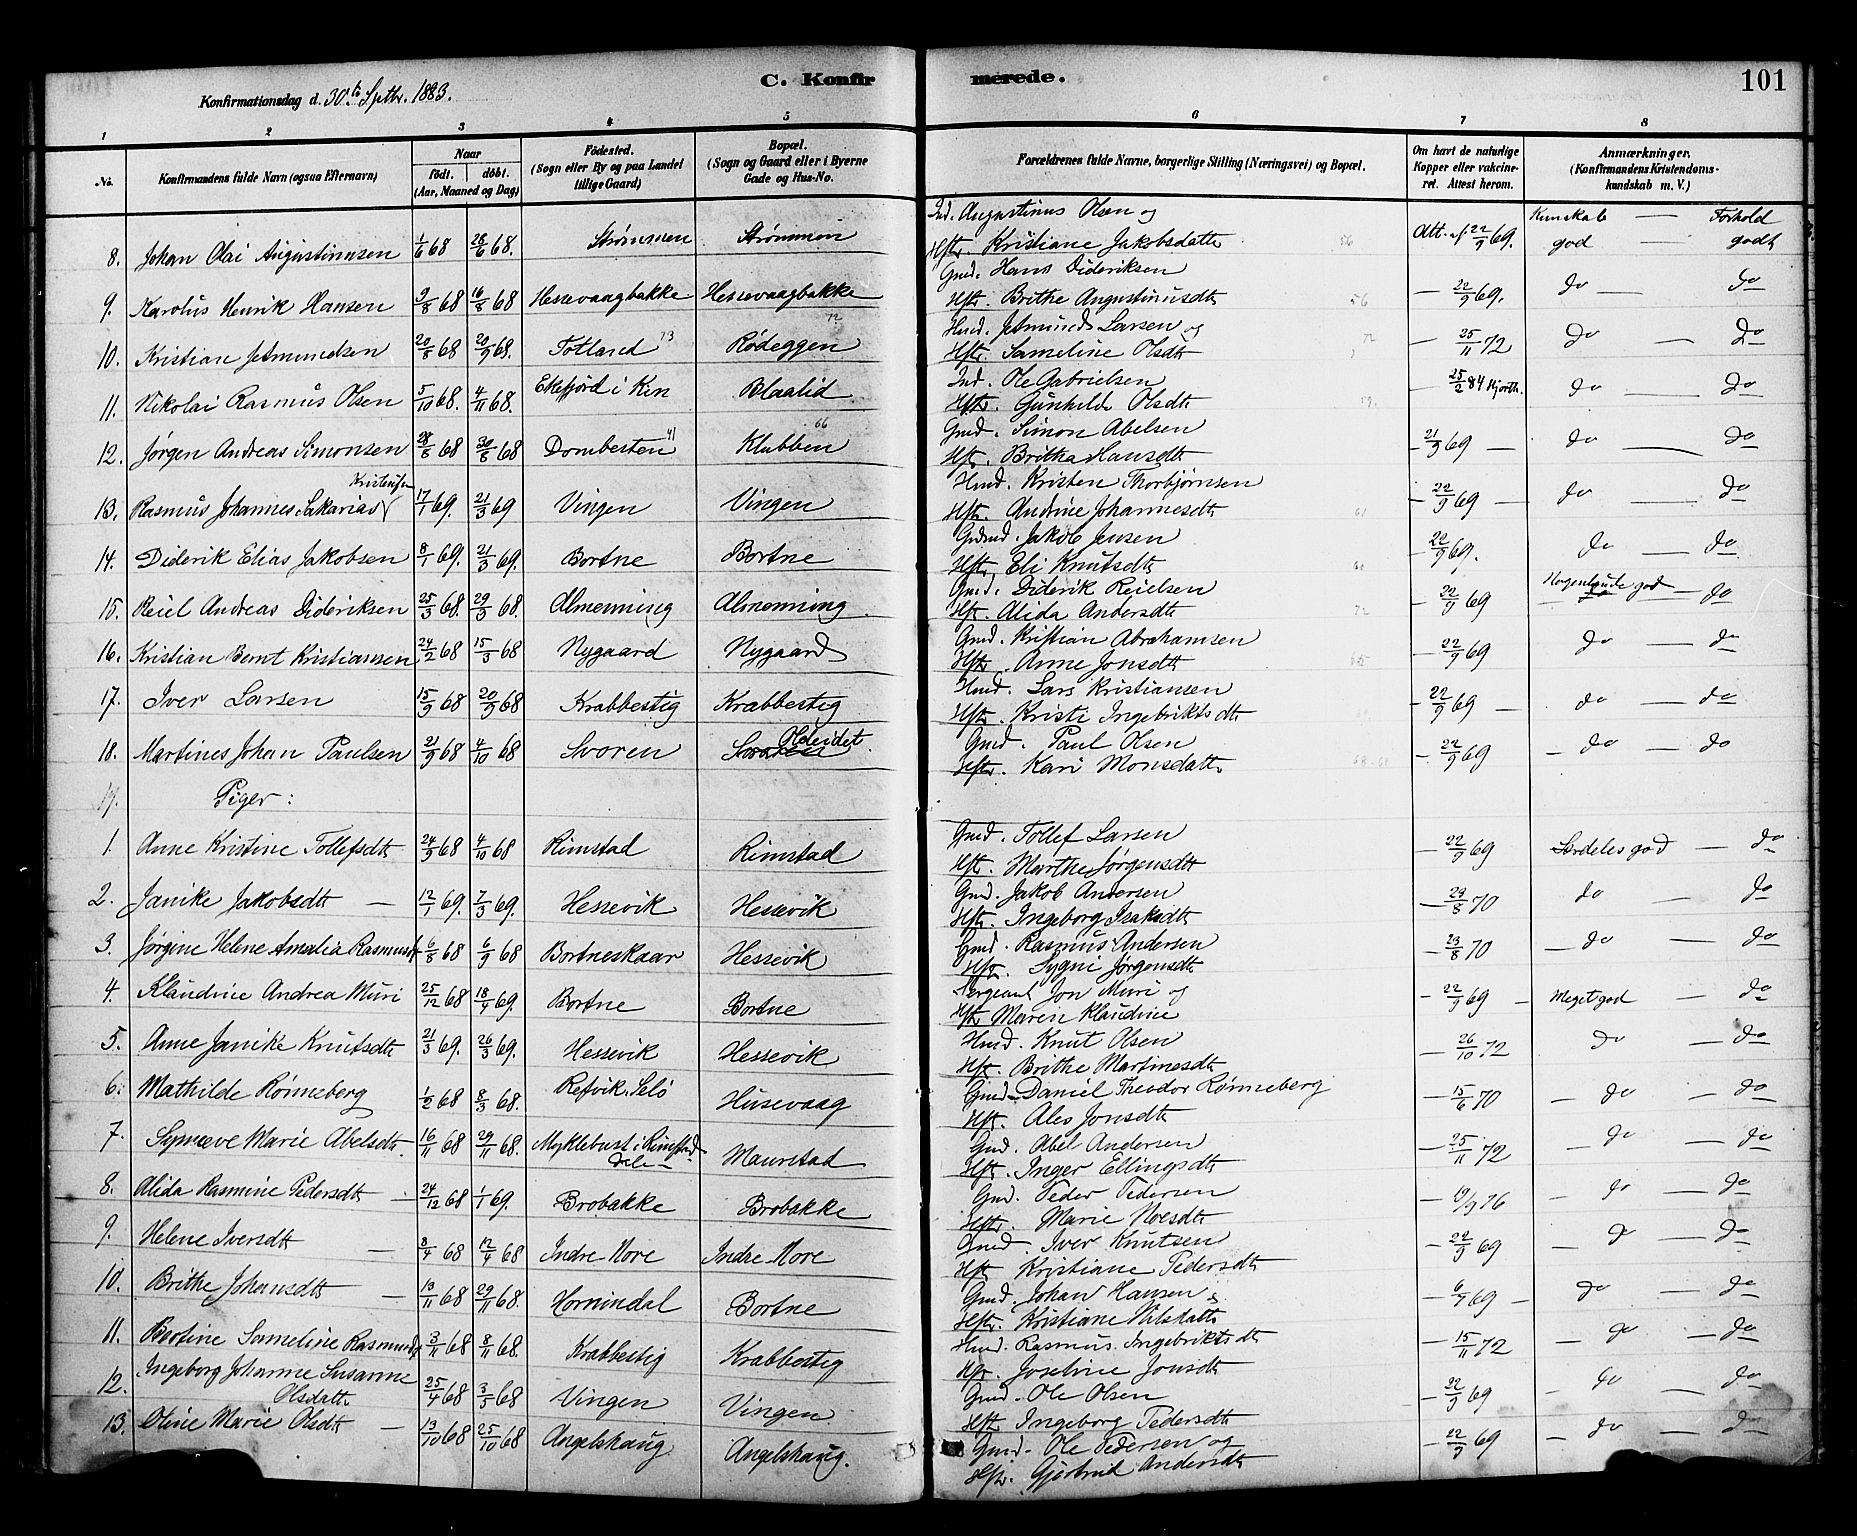 C. Konfirmerede. 101
Konfirmationsdag d. 30te Septbr. 1883.
1 2 3 4 5 6 7 8
No. Konfirmandens fulde Navn (ogsaa Efternavn) Naar født. døbt. (Aar, Maaned og Dag) Fødested. (Sogn eller By og paa Landet tillige Gaard) Bopæl. (Sogn og Gaard eller i Byerne Gade og Hus-No. Forældrenes fulde Navne, borgerlige Stilling (Næringsvei) og Bopæl. Om havt de naturlige Kopper eller vakcineret. Attest herom. Anmærkninger. (Konfirmandens Kristendomskundskab m. V.)
Ind. Augustinus Olsen og Kunskab — Forhold
8. Johan Olai Augustinusen 1/6 68 28/6 68. Strømmen Strømmen Hstr. Kristiane Jakobsdattr 56 Att. af 22/9 69. god — godt
Gmd. Hans Dideriksen
9. Karolus Henrik Hansen 9/8 68 16/8 68 Hessevaagbakke Hessevaagbakke Hstr. Brithe Augustinusdtr 56 — 22/9 69. do — do
Hmd. Jetmund Larsen og
10. Kristian Jetmundsen 20/8 68 20/9 68. Totland 73 Rødeggen 72 Hstr. Sameline Olsdtr 72 — 25/11 72 do — do
Ind. Ole Gabrielsen
11. Nikolai Rasmus Olsen 5/10 68. 4/11 68. Ekefjord i Kin Blaalid Hstr. Gunhilde Olsdtr 59. — 25/2 84 Hjorth. do — do
Gmd. Simon Abelsen
12. Jørgen Andreas Simonsen 28/8 68 30/8 68 Dombesten 41 Klubben 66 Hstr. Brithe Hansdtr 21/9 69 — do — do
Hmd. Kristen Thorbjørnsen
13. Rasmus Johannes Sakarias Kristensen 17/1 69. 21/3 69 Vingen Vingen Hstr. Andrine Johannesdtr 61 — 22/9 69 — do — do
Gmd. Jakob Jensen
14. Diderik Elias Jakobsen 8/1 69. 21/3 69. Bortne Bortne Hstr. Eli Knutsdtr — 22/9 69. do — do
Gmd. Diderik Reielsen
15. Reiel Andreas Dideriksen 25/3 68. 29/3 68. Almenning Almenning. Hstr. Alida Andersdtr 72 — 22/9 69 Nogenlunde god — do
Gmd. Kristian Abrahamsen
16. Kristian Bernt Kristiansen 24/2 68 15/3 68 Nygaard Nygaard Hstr. Anne Jonsdtr — 22/9 69 do — do
Hmd. Lars Kristiansen
17. Iver Larsen 15/9 68 20/9 68 Krabbestig Krabbestig Hstr. Kristi Ingebriktsdtr — 22/9 69 — do — do
Gmd. Paul Olsen
18. Martines Johan Paulsen 21/9 68 4/10 68 Svoren Oldeidet. Hstr. Kari Monsdattr — 22/9 69 — do — do
19. Piger:
Gmd. Tollef Larsen
1. Anne Kristine Tollefsdtr 24/9 68 4/10 68 Rimstad Rimstad Hstr. Marthe Jørgensdtr — 22/9 69 Særdeles god — do
Gmd. Jakob Andersen
2. Janike Jakobsdtr — 12/1 69. 7/3 69. Hessevik Hessevik Hstr. Ingeborg Isaksdtr — 29/8 70 do — do
Gmd. Rasmus Andersen
3. Jørgine Helene Amalia Rasmusdtr 6/8 68 6/9 68 Bortneskaar Hessevik Hstr. Sygni Jørgensdtr — 23/8 70 — do — do
Sergeant Jon Muri og
4. Klaudine Andrea Muri 25/12 68 18/4 69. Bortne Bortne Hstr. Maren Klaudine — 22/9 69 — Meget god — do
Hmd. Knut Olsen
5. Anne Janike Knutsdtr 21/3 69. 26/3 69. Hessevik Hessevik Hstr. Brithe Martinesdtr — 26/10 72 do — do
Gmd. Daniel Theodor Rønneberg
6. Mathilde Rønneberg 1/2 68 8/3 68. Refvik. Selø Husevaag Hstr. Ales Jonsdtr — 15/6 70 — do — do
Gmd. Abel Andersen
7. Synneve Marie Abelsdtr. 16/11 68 29/11 68. Myklebust i Rimstaddalen Maurstad Hstr. Inger Ellingsdtr — 25/11 72 — do — do
Gmd. Peder Pedersen
8. Alida Rasmine Pedersdtr — 24/12 68 1/1 69. Brobakke Brobakke Hstr. Marie Noesdtr — 19/9 76 — do — do
Gmd. Iver Knutsen
9. Helene Iversdtr — 8/4 68 12/4 68 Indre Nore Indre Nore Hstr. Kristiane Pedersdtr — 22/9 69 — do — do
Gmd. Johan Hansen &
10. Brithe Johansdtr — 13/11 68 29/11 68. Hornindal Bortne Hstr. Kristiane Nilsdatr — 6/9 69 — do — do
Hmd. Rasmus Ingebriktsdtr
11. Bertine Sameline Rasmusdtr 3/11 68 8/11 68. Krabbestig Krabbestig Hstr. Joseline Jonsdtr — 15/11 72 — do — do
12. Ingeborg Johanne Susanne Olsdattr 25/4 68 3/5 68 Vingen Vingen Gmd. Ole Olsen — 22/9 69 — do — do
Hstr. Ingeborg Pedersdtr
13. Oline Marie Olsdtr — 13/10 68 25/10 68 Angelshaug Angelshaug. Gmd. Ole Pedersen og — 22/9 69 — do — do
Hstr. Gjertrud Andersdtr